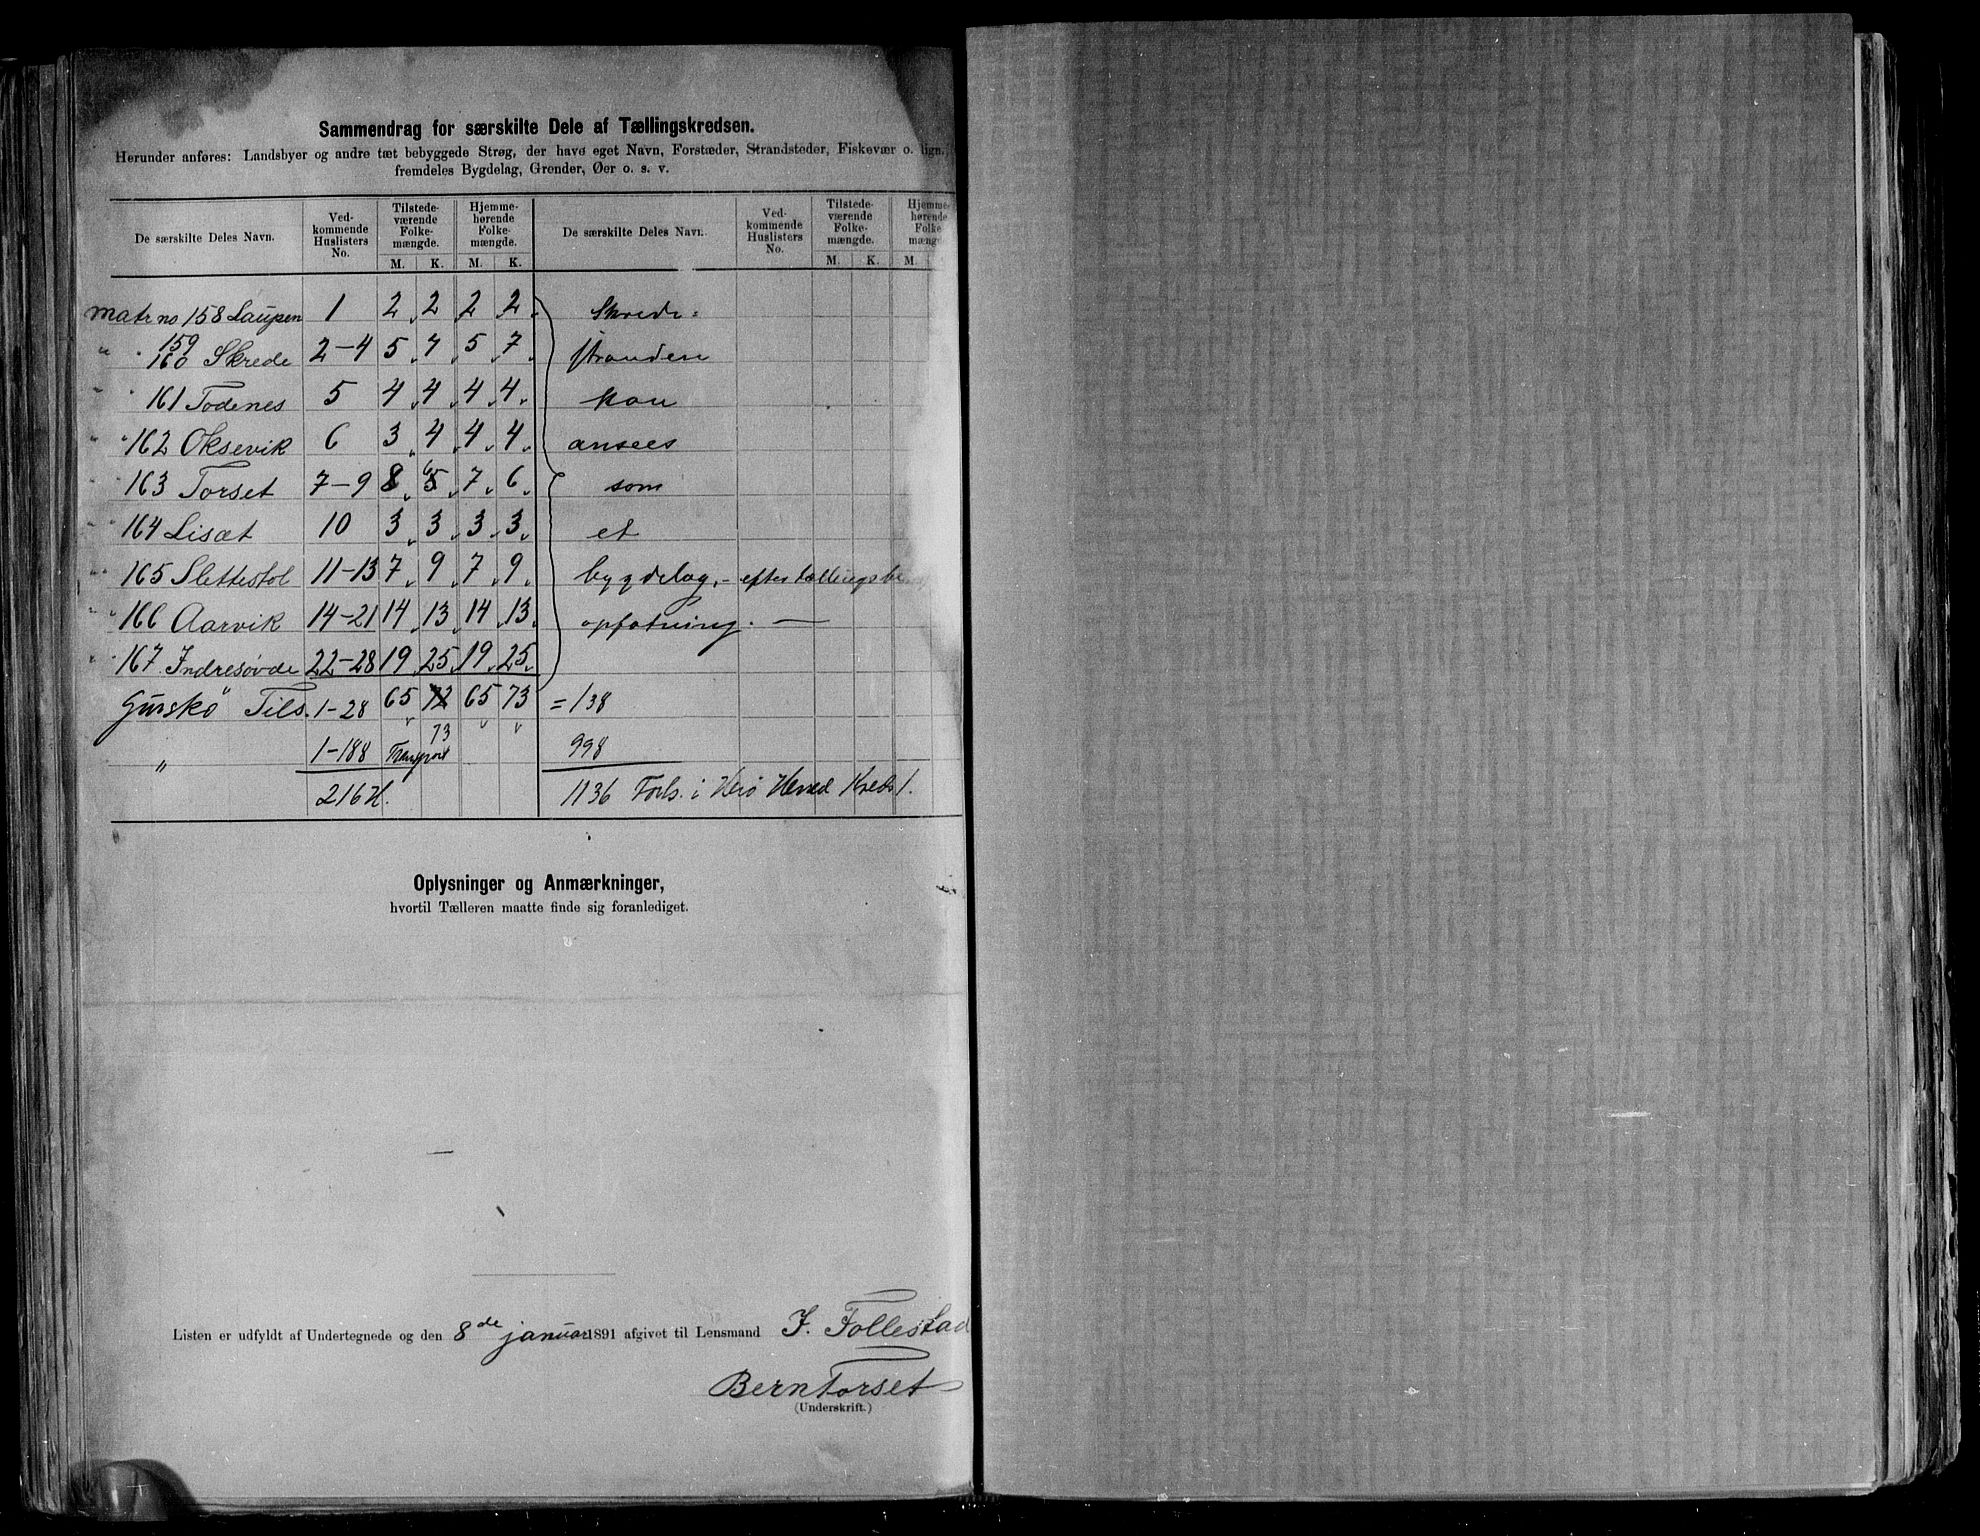 Sammendrag for særskilte Dele af Tællingskredsen.
Herunder anføres: Landsbyer og andre tæt bebyggede Strøg, der have eget Navn, Forstæder, Strandsteder, Fiskevær o. lign.,
fremdeles Bygdelag, Grender, Øer o. s. v.
De særskilte Deles Navn. Ved-kommende Huslisters No. Tilstede-værende Folke-mængde. Hjemme-hørende Folke-mængde. De særskilte Deles Navn. Ved-kommende Huslisters No. Tilstede-værende Folke-mængde. Hjemme-hørende Folke-mængde
M. K. M. K. M. K. M.
Matr no 158 Laupen 1 2 2 2 2 Skrede=
" " 159 160 Skrede 2-4 5 7 5 7 stranden
" " 161 Todenes 5 4 4 4 4 kan
" " 162 Oksevik 6 3 4 4 4 ansees
163 Torset 7-9 8 6 5 7 6 som
" " 164 Lisæt 10 3 3 3 3 et
" " 165 Slettestøl 11-13 7 9 7 9 bygdelag, - efter tællingsb
" " 166 Aarvik 14-21 14 13 14 13 opfatning. —
" " 167 Indresøvde 22-28 19 25 19 25
Gurskø Tils. 1-28 65 72 65 73 = 138
73
" 1-188 Transport 998
216 H. 1136 Forls. i Herø Herred Kreds 1.
Oplysninger og Anmærkninger,
hvortil Tælleren maatte finde sig foranlediget.
Listen er udfyldt af Undertegnede og den 8de januar 1891 afgivet til Lensmand J. Follestad
Bernt Torset
(Underskrift.)